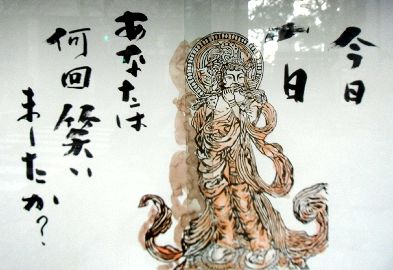 今日
一日
あなたは
何回笑い
ましたか?